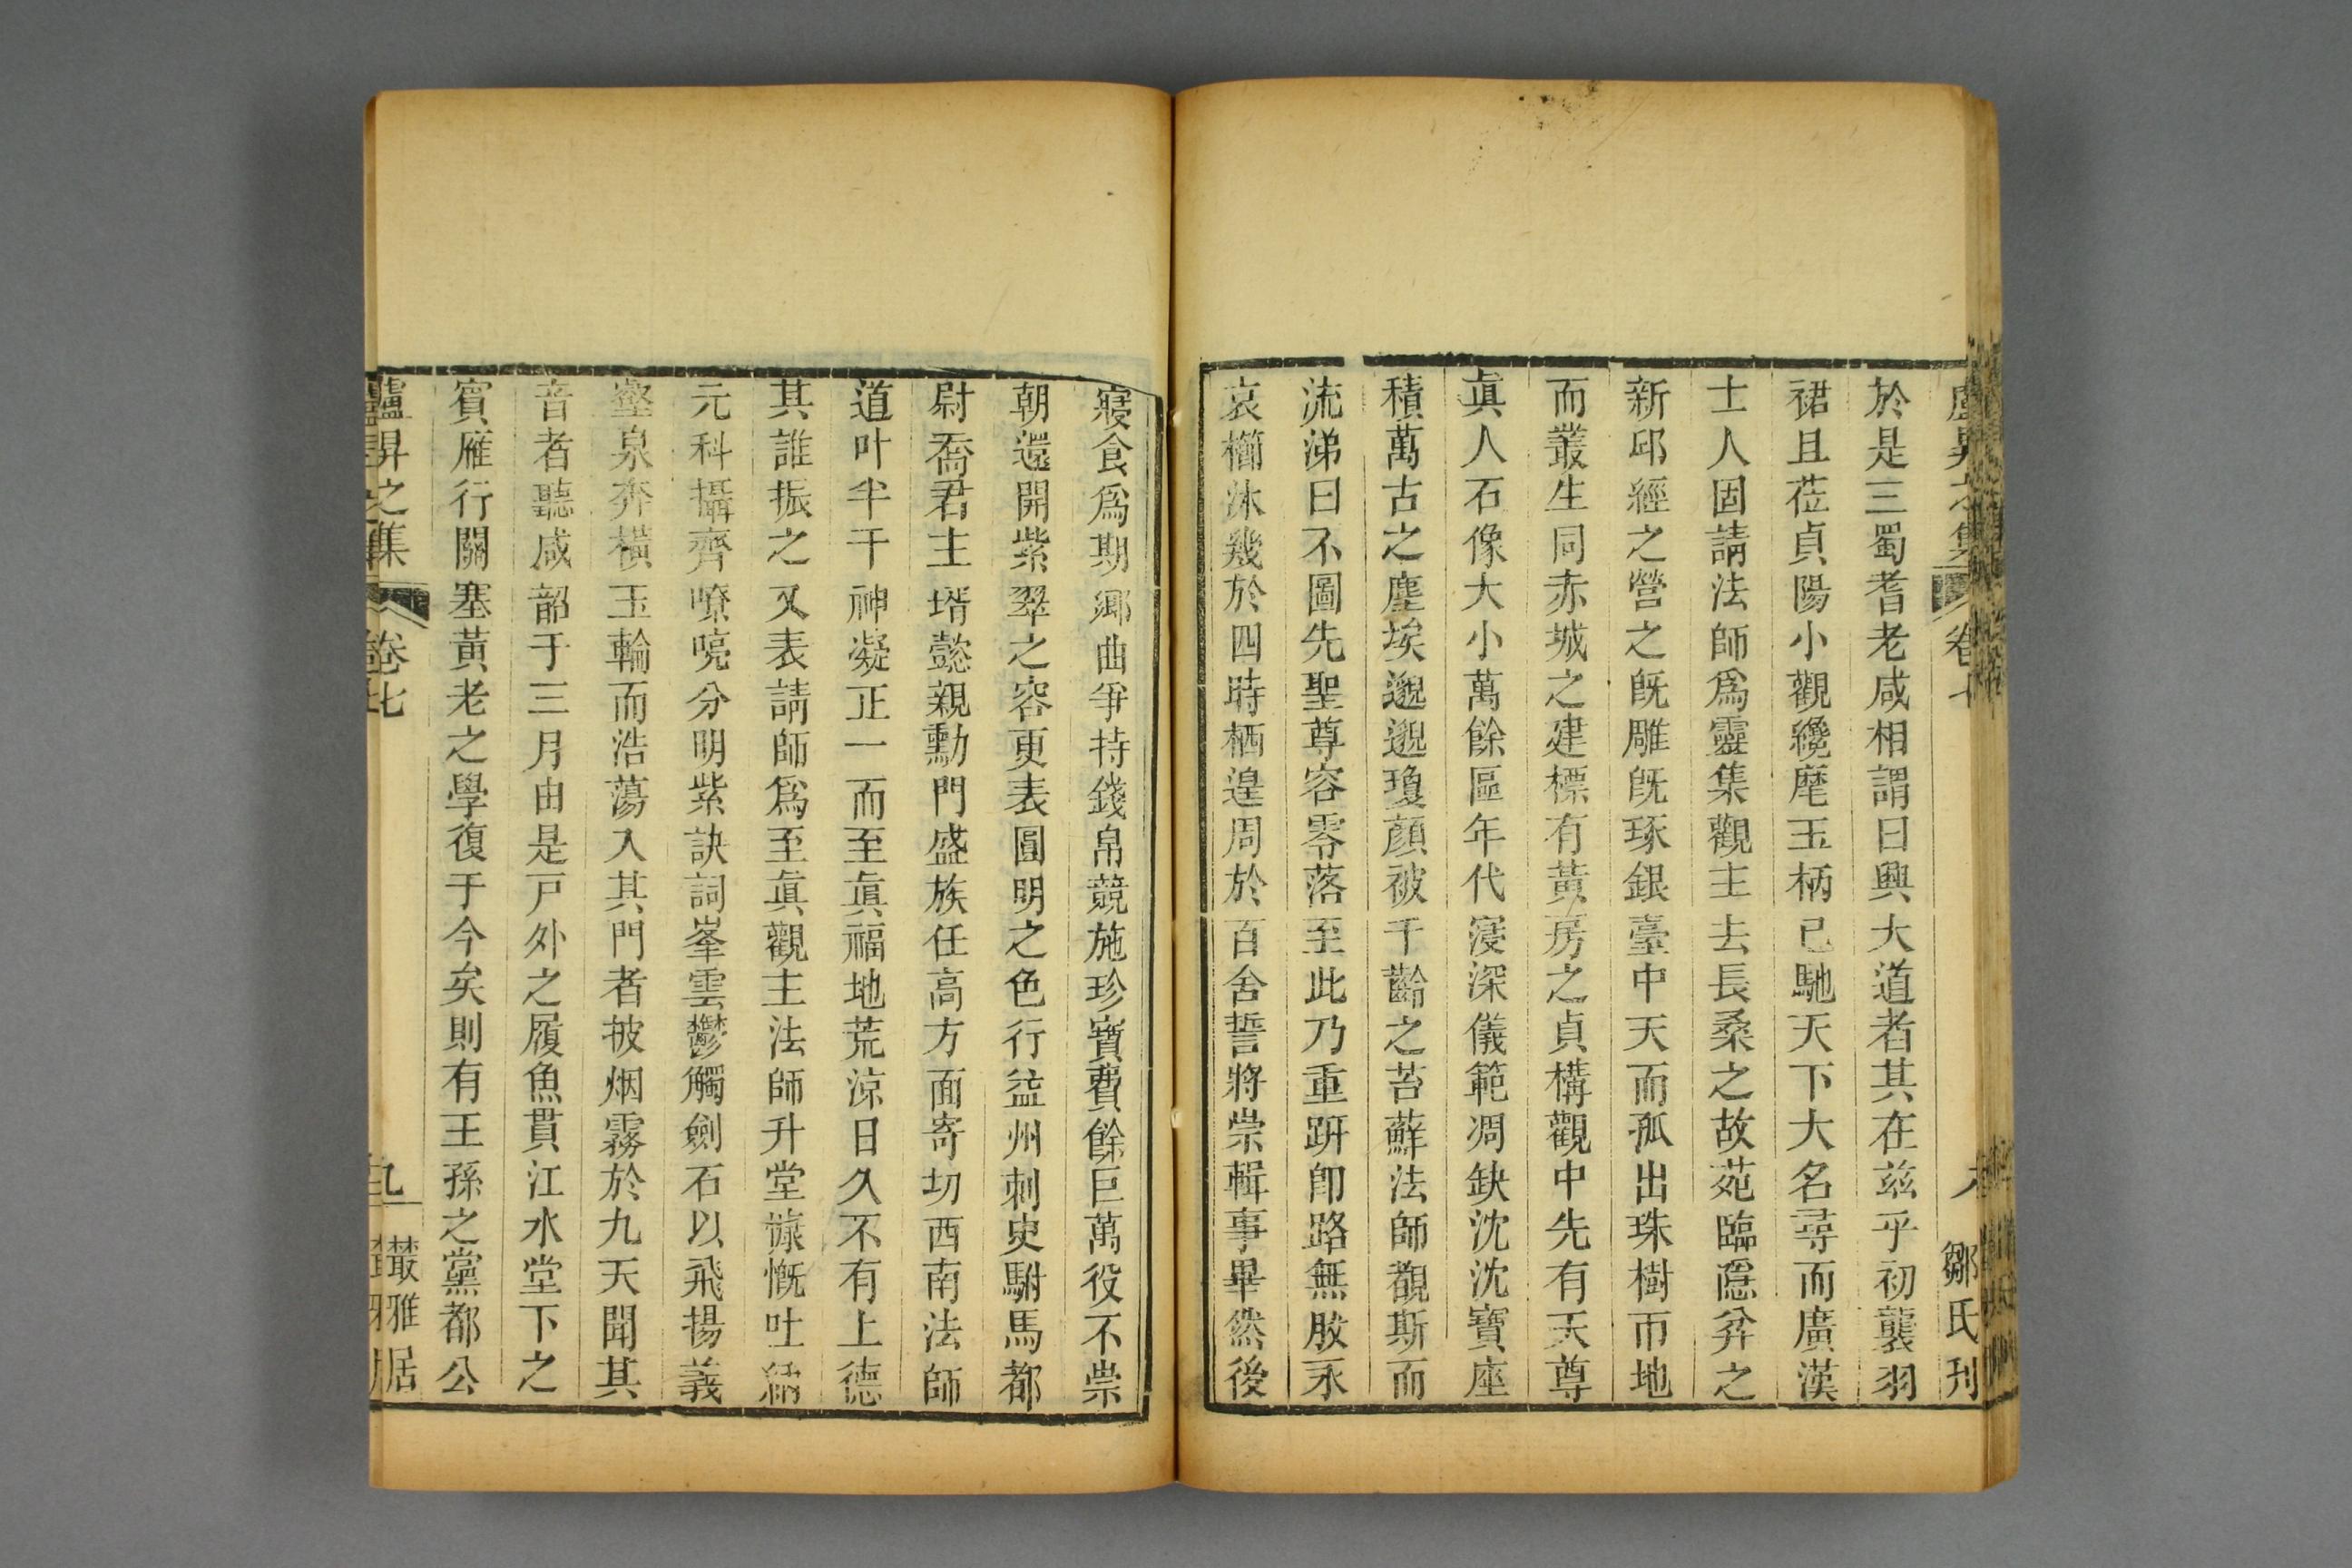 盧昇之集 卷七 八 鄒氏刊
於是三蜀耆老咸相謂曰興大道者其在茲乎初襲羽
裙且莅貞陽小觀纔麾玉柄已馳天下大名尋而廣漢
士人固請法師爲靈集觀主去長桑之故苑臨隱弅之
新邱經之營之旣雕旣琢銀臺中天而孤出珠樹帀地
而叢生同赤城之建標有黃房之貞構觀中先有天尊
眞人石像大小萬餘區年代寖深儀範凋缺沈沈寶座
積萬古之塵埃邈邈瓊顏被千齡之苔蘚法師觀斯而
流涕曰不圖先聖尊容零落至此乃重趼卽路無胈永
哀櫛沐幾於四時栖遑周於百舍誓將崇輯事畢然後
寢食爲期鄉曲爭持錢帛競施珍寶費餘巨萬役不崇
朝還開紫翠之容更表圓明之色行益州刺史駙馬都
尉喬君主壻懿親勳門盛族任高方面寄切西南法師
道叶半千神凝正一而至眞福地荒涼日久不有上德
其誰振之又表請師爲至眞觀主法師升堂慷慨吐納
元科攝齊嘹喨分明紫訣詞峯雲鬱觸劍石以飛揚義
壑泉奔橫玉輪而浩蕩入其門者披烟霧於九天聞其
音者聽咸韶于三月由是戸外之履魚貫江水堂下之
賓雁行關塞黃老之學復于今矣則有王孫之黨都公
盧昇之集 卷七 九 叢雅居